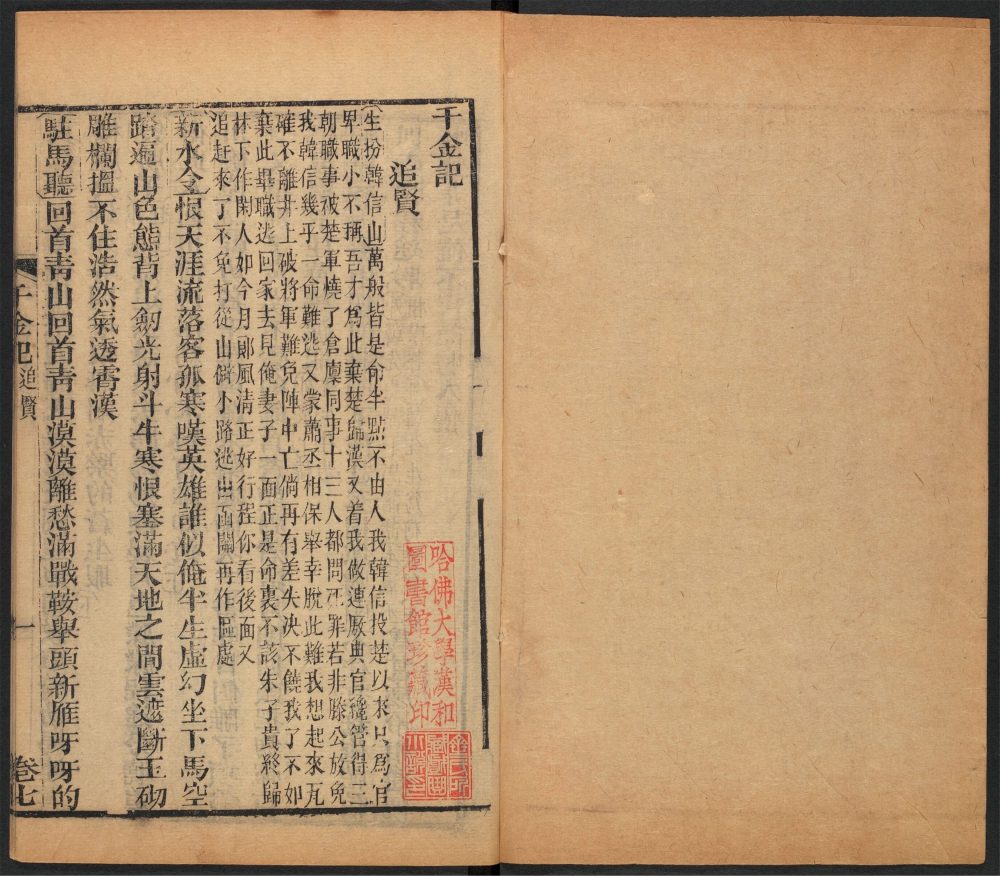 千金記
追賢
生扮韓信山萬般皆是命半點不由人我韓信投楚以來只為官
卑職小不稱吾才為此棄楚歸漢又着我做連厫典官纔管得三
朝職事被楚軍燒了倉廒同事十三人都問死罪若非滕公放免
我韓信幾乎一命難逃又蒙蕭丞相保舉幸脫此難我想起來瓦
確不離井上破將軍難免陣中亡倘再有差失决不饒我了不如
棄此畢職逃回家去見俺妻子一面正是命裏不該朱子貴終歸
林下作閑人如今月郎風清正好行程你看後面又
追赶來了不免打從山僻小路逃出函關再作區處
新水令恨天涯流落客孤寒嘆英雄誰似俺半生虛幻坐下馬空
踏遍山色態背上劒光射斗牛寒恨塞滿天地之間雲遮斷玉砌
雕欄搵不住浩然氣透霄漢
駐馬聽回首青山回首青山漠漠離愁滿戰鞍舉頭新雁呀呀的
千金記 追賢 一 卷七
哈佛大學漢和
圖書館珍藏印